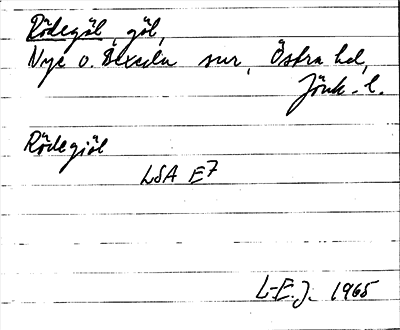 Rödegöl, göl,
Nye o. Bexeda snr, Östra hd,
Jönk. l.
Rödegiöl
LSA E7
L-E.J. 1965